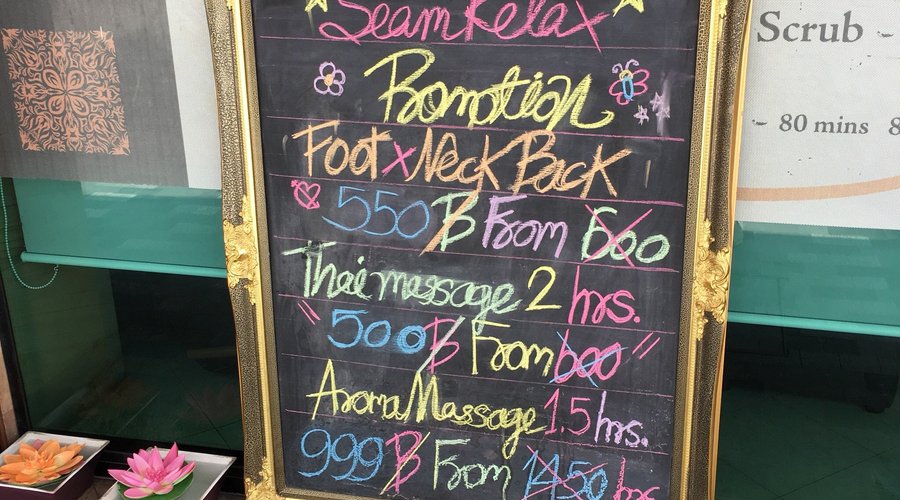 Seam Relax
Promotion
Foot x Neck Back
550฿ From 600
Thai massage 2 hrs.
"500฿ From 600"
Aroma Massage 1.5 hrs.
999฿ From 1450
Scrub -
- 80 mins 8